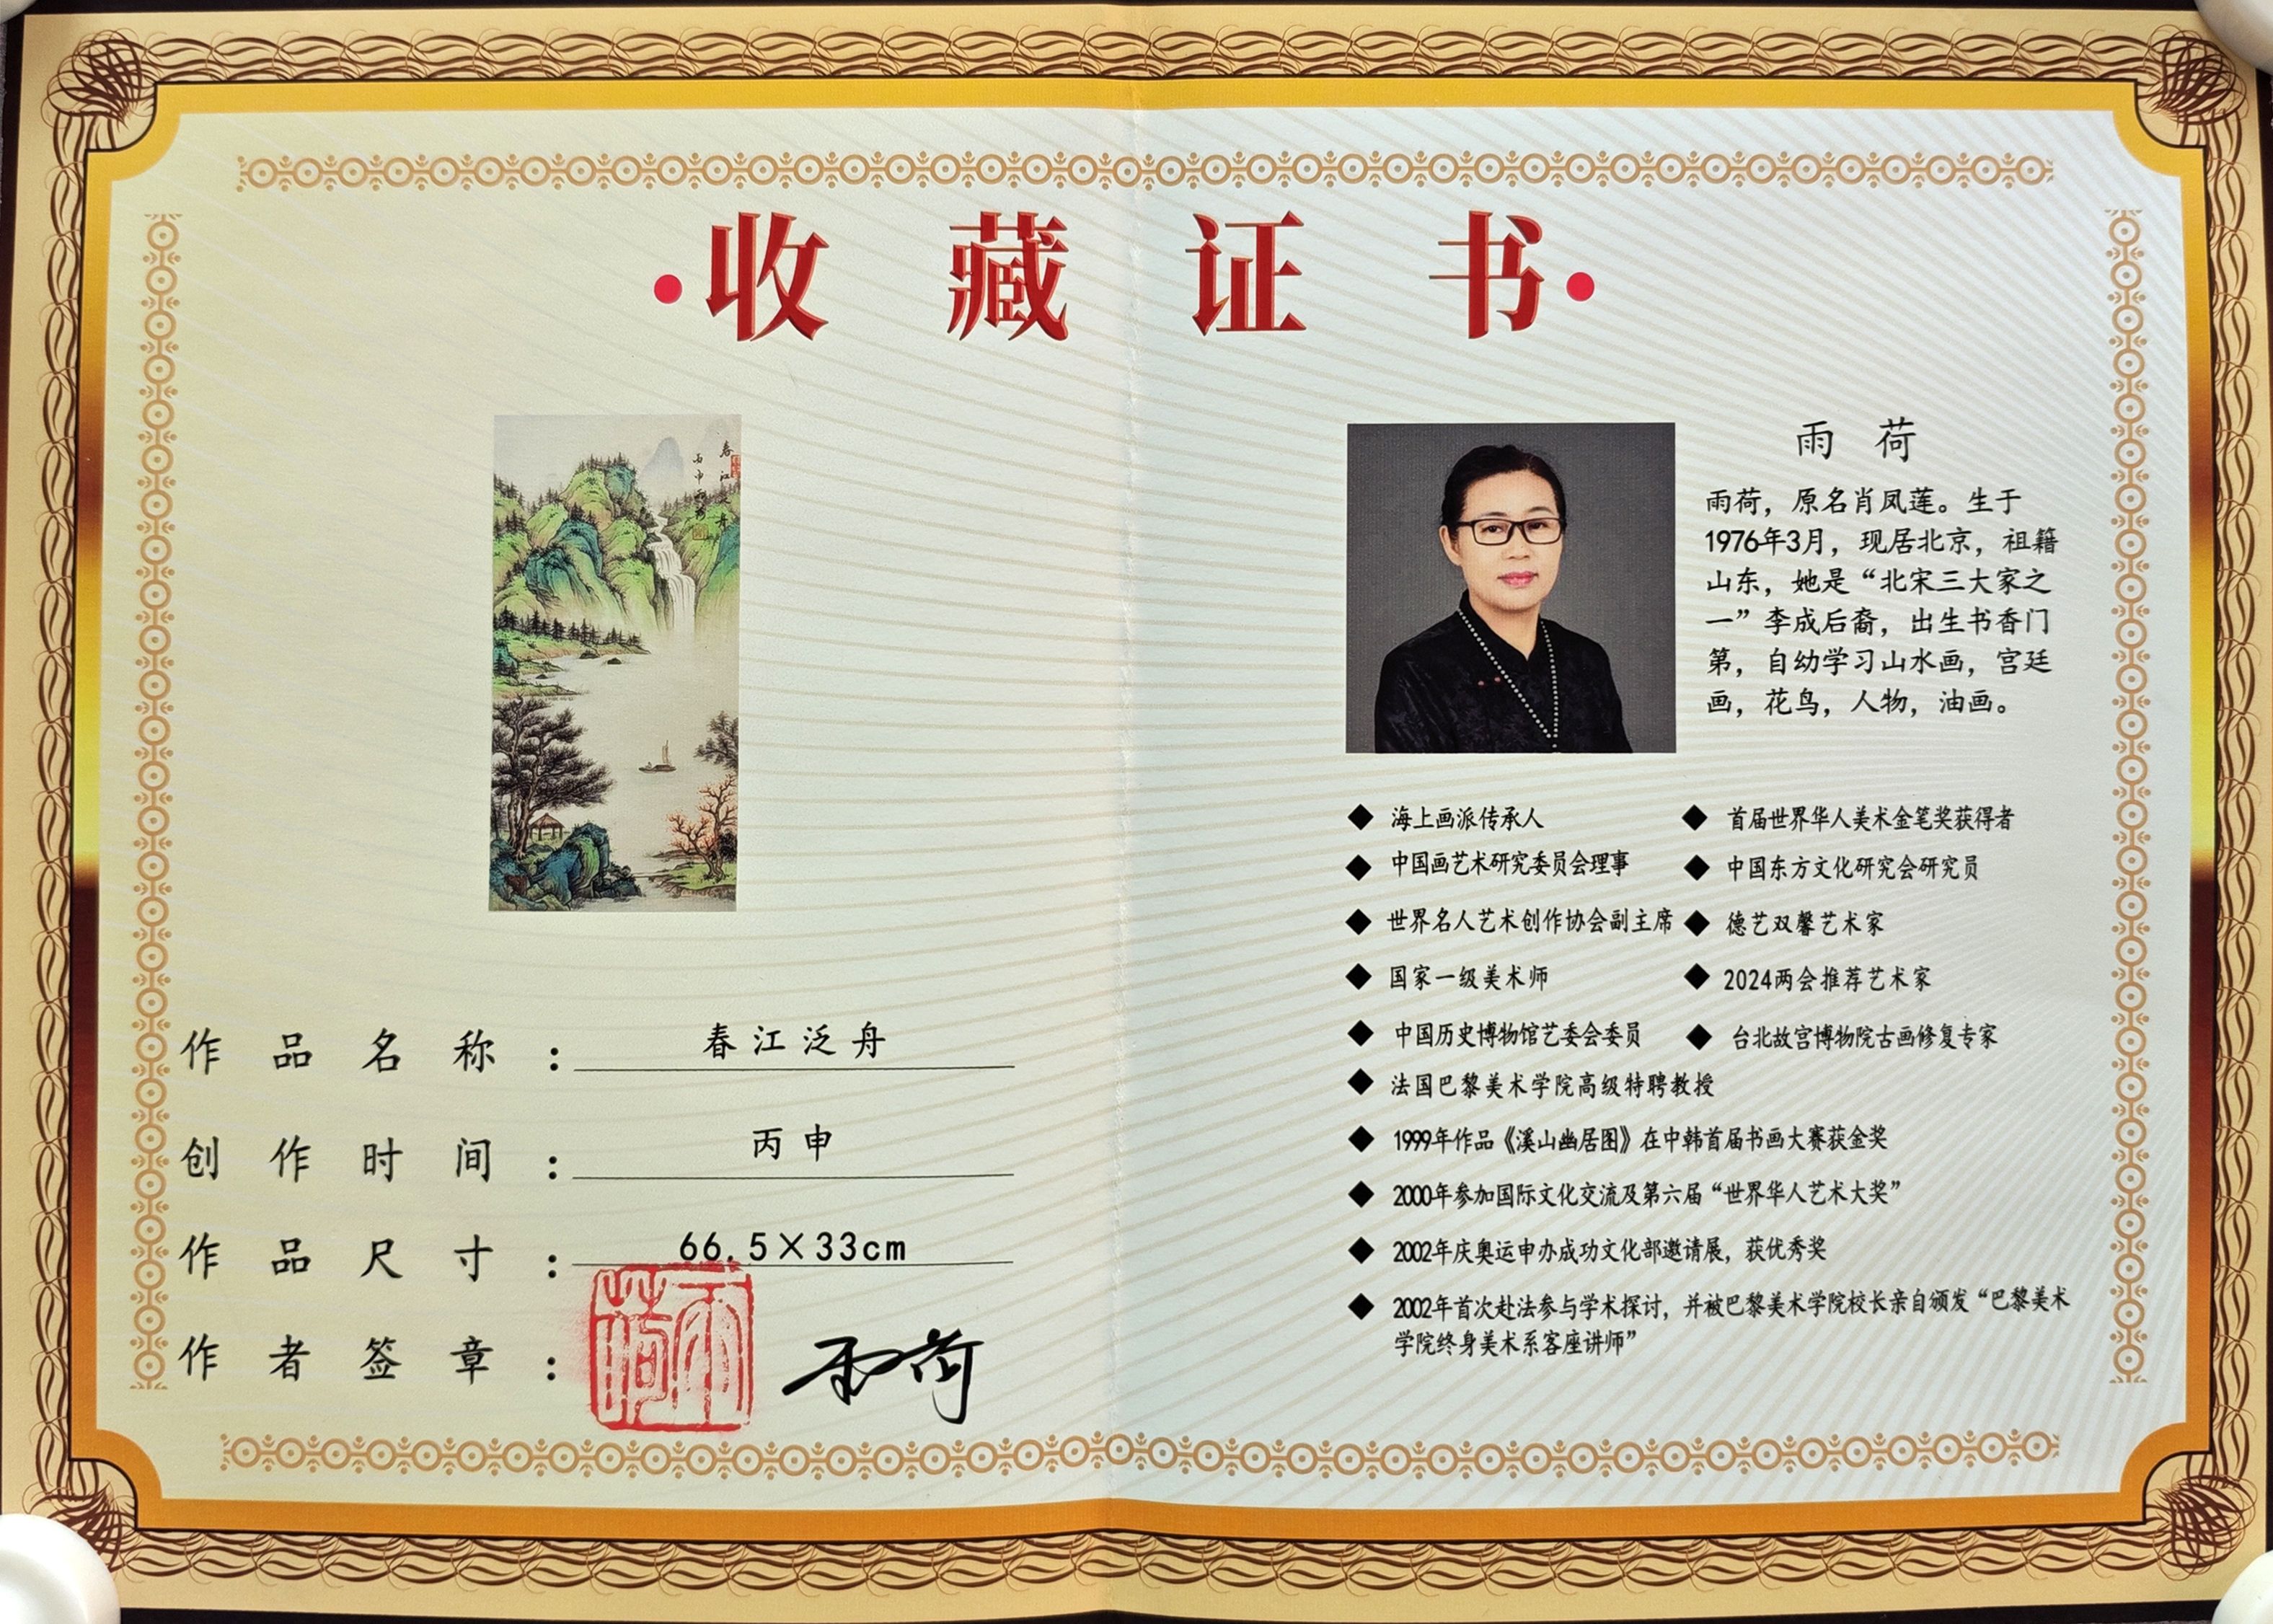 ·收藏证书·
春江泛舟
丙申雨荷
作品名称：春江泛舟
创作时间：丙申
作品尺寸：66.5×33cm
作者签章：
雨荷
雨荷
雨荷
雨荷，原名肖凤莲。生于
1976年3月，现居北京，祖籍
山东，她是“北宋三大家之
一”李成后裔，出生书香门
第，自幼学习山水画，宫廷
画，花鸟，人物，油画。
◆ 海上画派传承人
◆ 首届世界华人美术金笔奖获得者
◆ 中国画艺术研究委员会理事
◆ 中国东方文化研究会研究员
◆ 世界名人艺术创作协会副主席
◆ 德艺双馨艺术家
◆ 国家一级美术师
◆ 2024两会推荐艺术家
◆ 中国历史博物馆艺委会委员
◆ 台北故宫博物院古画修复专家
◆ 法国巴黎美术学院高级特聘教授
◆ 1999年作品《溪山幽居图》在中韩首届书画大赛获金奖
◆ 2000年参加国际文化交流及第六届“世界华人艺术大奖”
◆ 2002年庆奥运申办成功文化部邀请展，获优秀奖
◆ 2002年首次赴法参与学术探讨，并被巴黎美术学院校长亲自颁发“巴黎美术
学院终身美术系客座讲师”